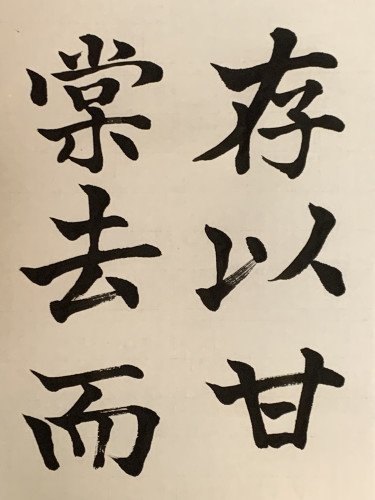 存以甘
棠去而